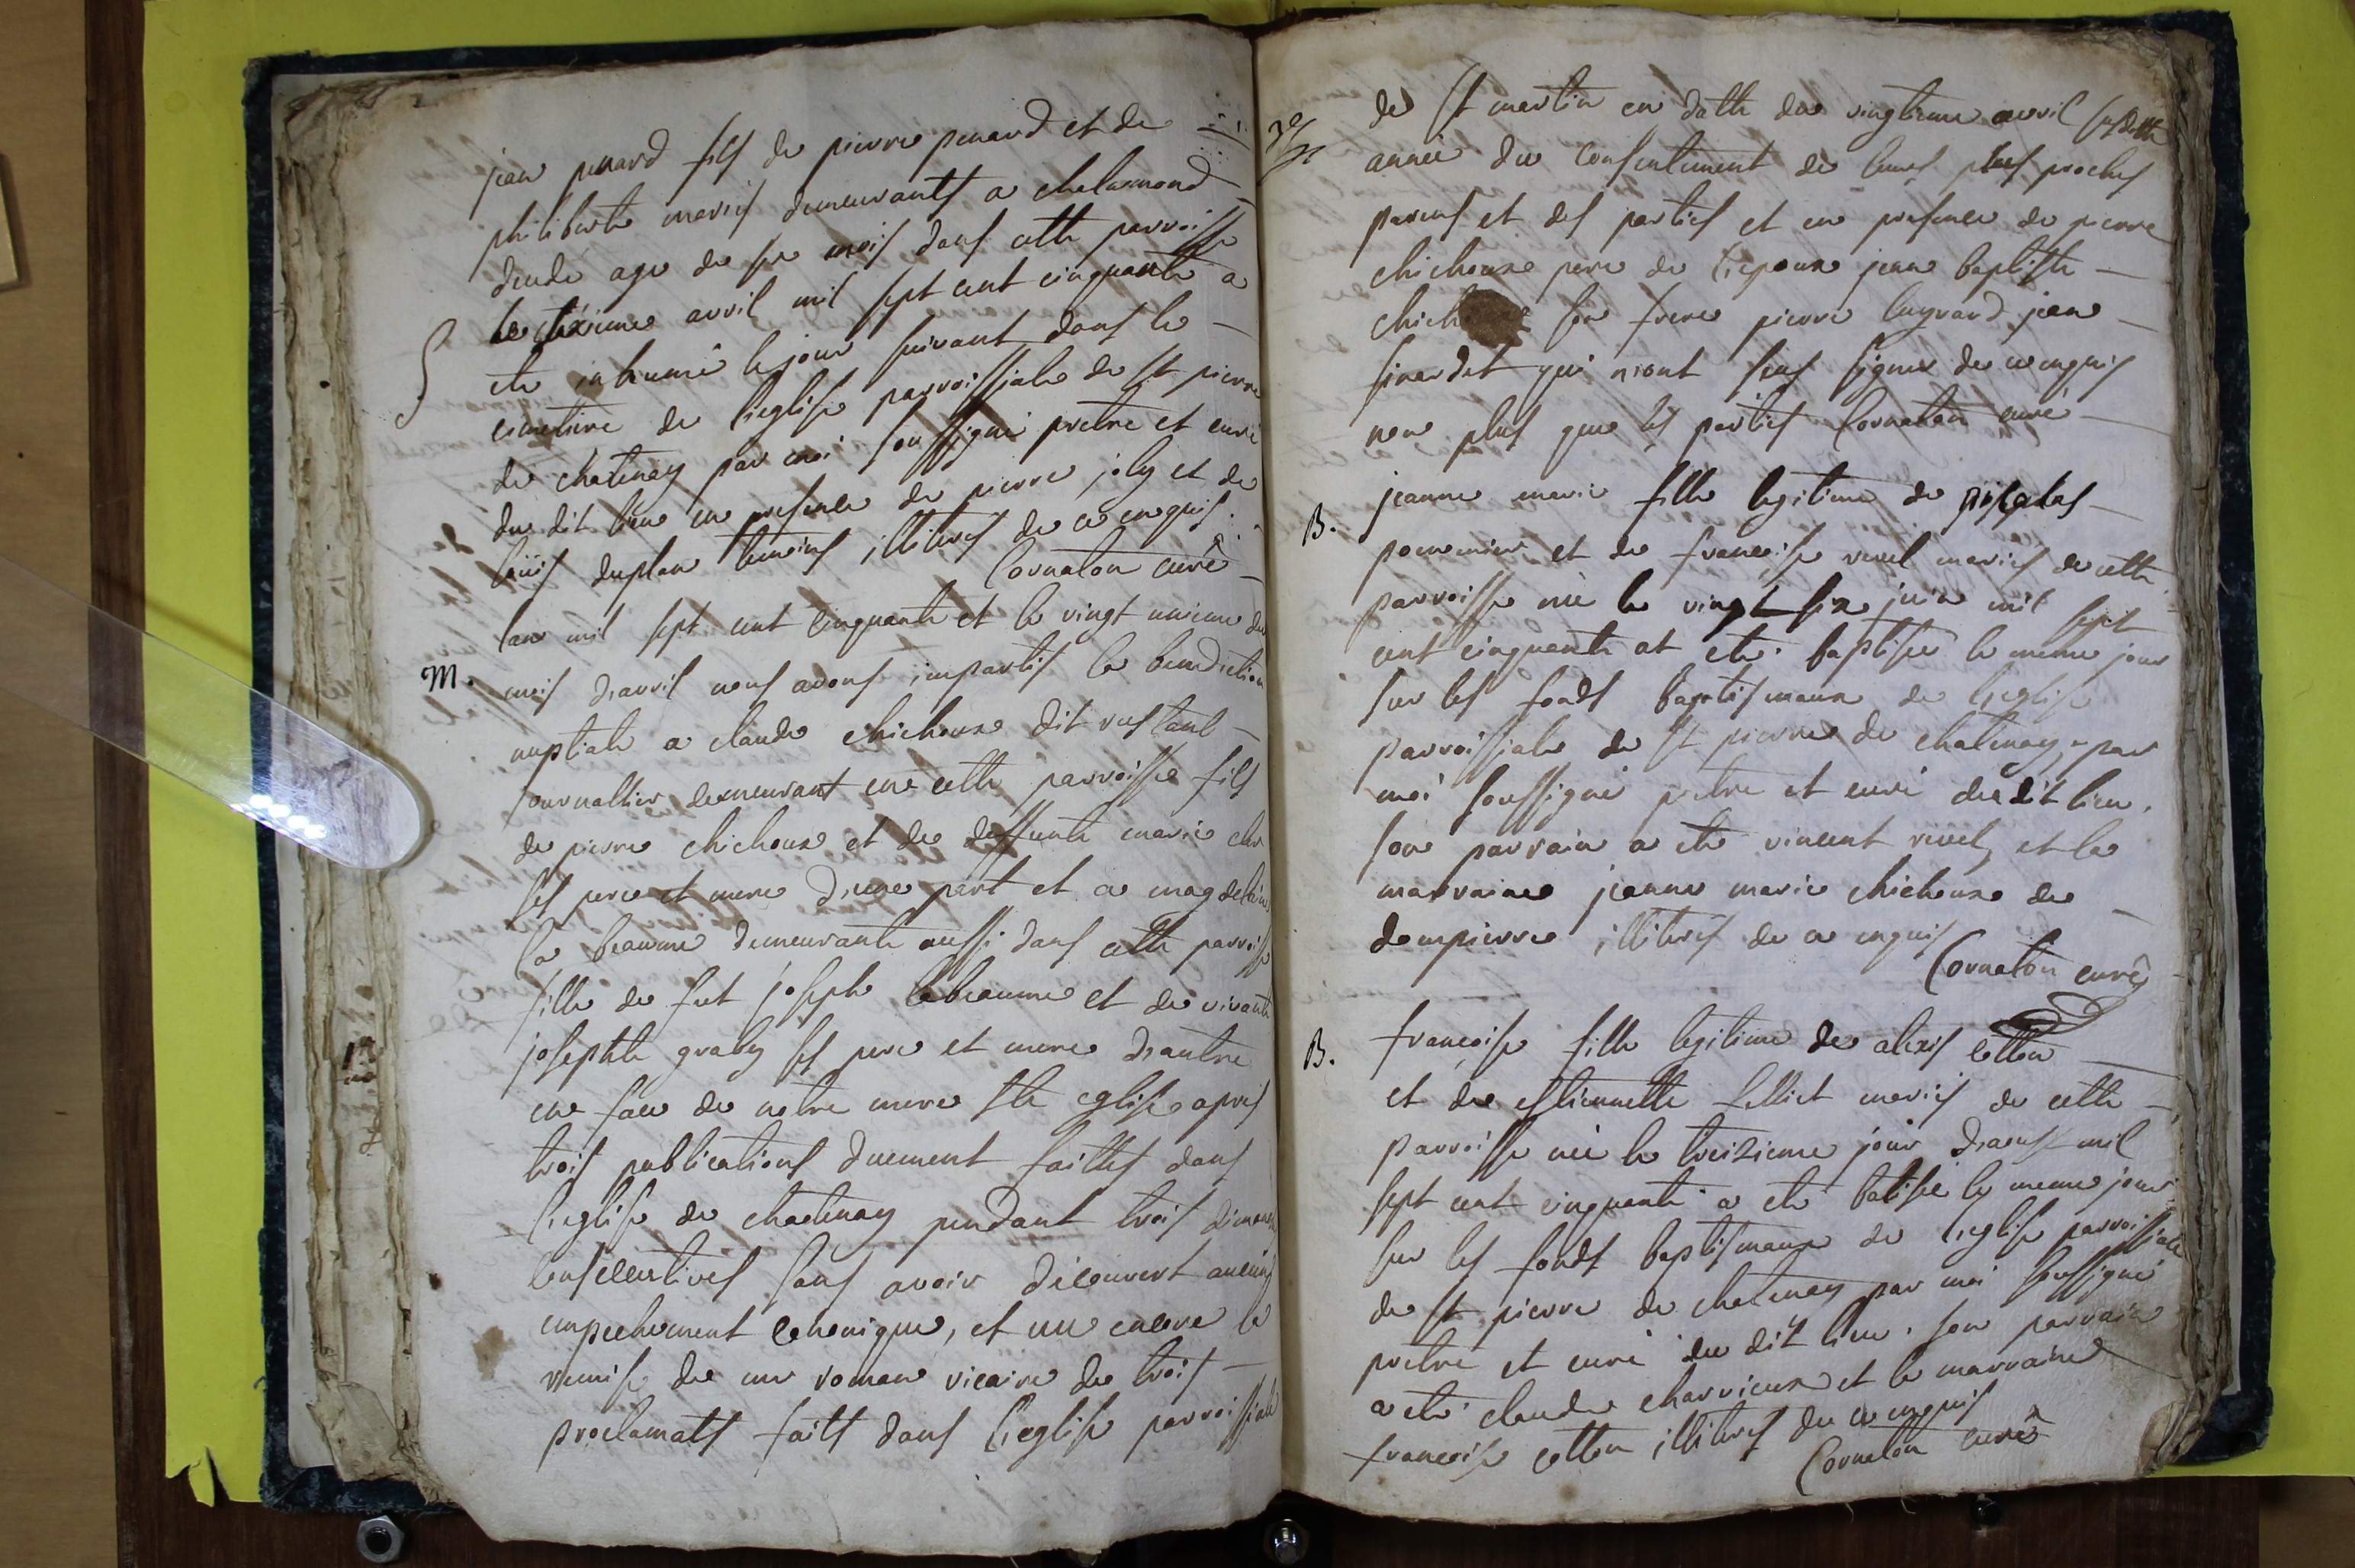 jean penard fils de pierre penard et de
philiberte mariés demeurants a chalamond
dende age de six mois dans cette parroisse
le sixieme avril mil sept cent cinquante a
S
ete inhumé le jour suivant dans le
cimetiere de l'eglise parroissiale de st pierre
de chatenay par moi soussigné pretre et curé
du dit lieu en presence de pierre joly et de
loüis duplan temoins illiteres de ce enquis.
Cornaton curé
M.
lan mil sept cent cinquante et le vingt unieme du
mois d'avril nous avons impartis la benediction
nuptiale a claude chichoux dit rustant
journallier demeurant en cette parroisse fils
de pierre chichoux et de deffunte marie
ses pere et mere d'une part et a magdelaine
la beaume demeurante aussi dans cette parroisse
fille de fut joseph labeaume et de vivante
josephte graby ses pere et mere d'autre
en face de notre mere ste eglise apres
trois publications duement faittes dans
l'eglise de chatenay pendant trois dimanches
consecutives sans avoir découvert aucuns
empechement canonique, et vue encore la
remise de mr roman vicaire de trois
proclamats faits dans l'eglise parroissiale
3e
de st martin en datte du vingtieme avril susditte
année du consentement de leurs plus proches
parens et des parties et en presence de pierre
chichouxe pere de l'epoux jean baptiste
chich son frere pierre luyrard jean
sinardet qui n'ont sous signes de ce enquis
non plus que les parties Cornaton curé
B.
jeanne marie fille legitime de
et de francoise revel mariés de cette
parroisse née le vingt six juin mil sept
cent cinquante at ete baptisée le meme jour
sur les fonds baptismaux de l'eglise
parroissiale de st pierre de chatenay, par
moi soussigné pretre et curé du dit lieu.
son parrain a ete vincent revel, et la
marraine jeanne marie chichoux de
dompierre illiterés de ce enquis
Cornaton curé
B.
françoise fille legitime de alexis cotton
et de estiennette felliet mariés de cette
parroisse née le treizieme jour d'aoust mil
sept cent cinquante a ete batisée le meme jour
sur les fonds baptismaux de l'eglise parroissiale
de st pierre de chatenay par moi soussigné
pretre et curé du dit lieu. son parrain
a ete claude charvieux et la marraine
francoise cotton illiteres de ce enquis
Cornaton curé